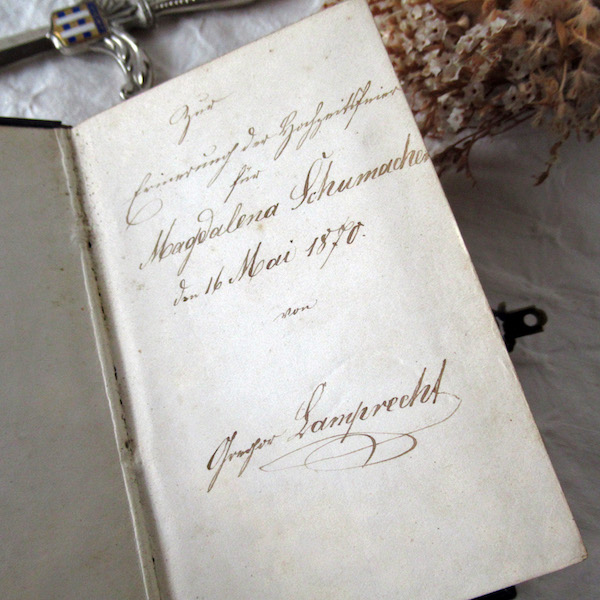 Zur
Erinerung der Hochzeitsfeier
für
Magdalena Schumacher
den 16 Mai 1870.
von
Gregor Lamprecht